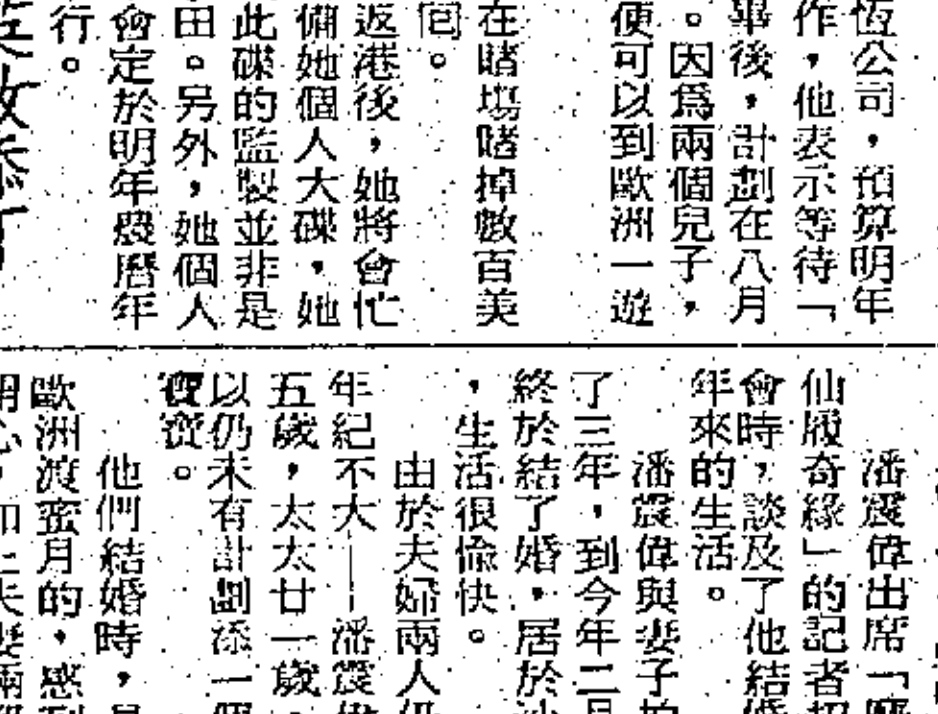 恆公司，預算明年
作，他表示等待「
畢後，計劃在八月
。因爲兩個兒子，
便可以到歐洲一遊
在賭場賭掉數百美
返港後，她將會忙
備她個人大碟，她
此碟的監製並非是
田。另外，她個人
會定於明年農曆年
行。
潘震偉出席「
仙履奇緣」的記者招
會時，談及了他結婚
年來的生活。
潘震偉與妻子拍
了三年，到今年二月
終於結了婚，居於沙
，生活很愉快。
由於夫婦兩人仍
年紀不大——潘震偉
五歲，太太廿一歲，
以仍未有計劃添一個
寶寶。
他們結婚時，是
歐洲渡蜜月的，感到
開心，加上夫妻兩